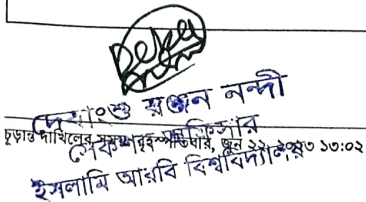 দেবাংশু রঞ্জন নন্দী
সেকশন অফিসার
চূড়ান্ত দাখিলের সময়: বৃহস্পতিবার, জুন ২২, ২০২৩ ১৩:০২
ইসলামি আরবি বিশ্ববিদ্যালয়